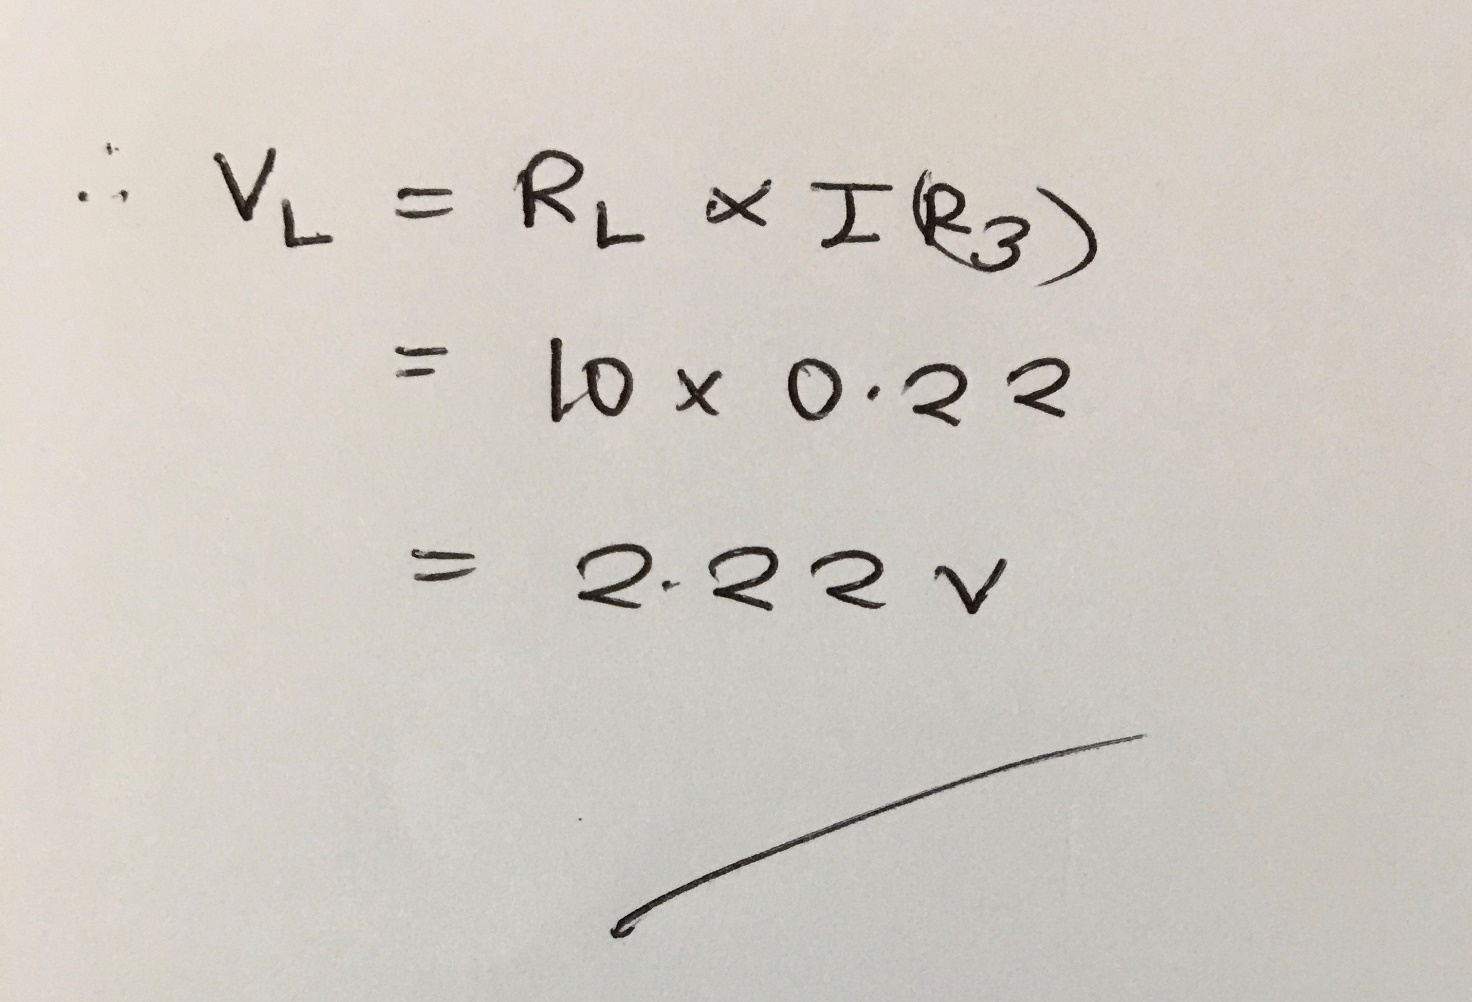 ∴ V_L = R_L × I(R_3)
= 10 × 0.22
= 2.22 V